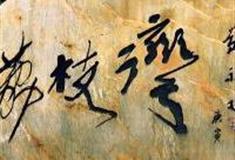 荔枝灣
庚寅